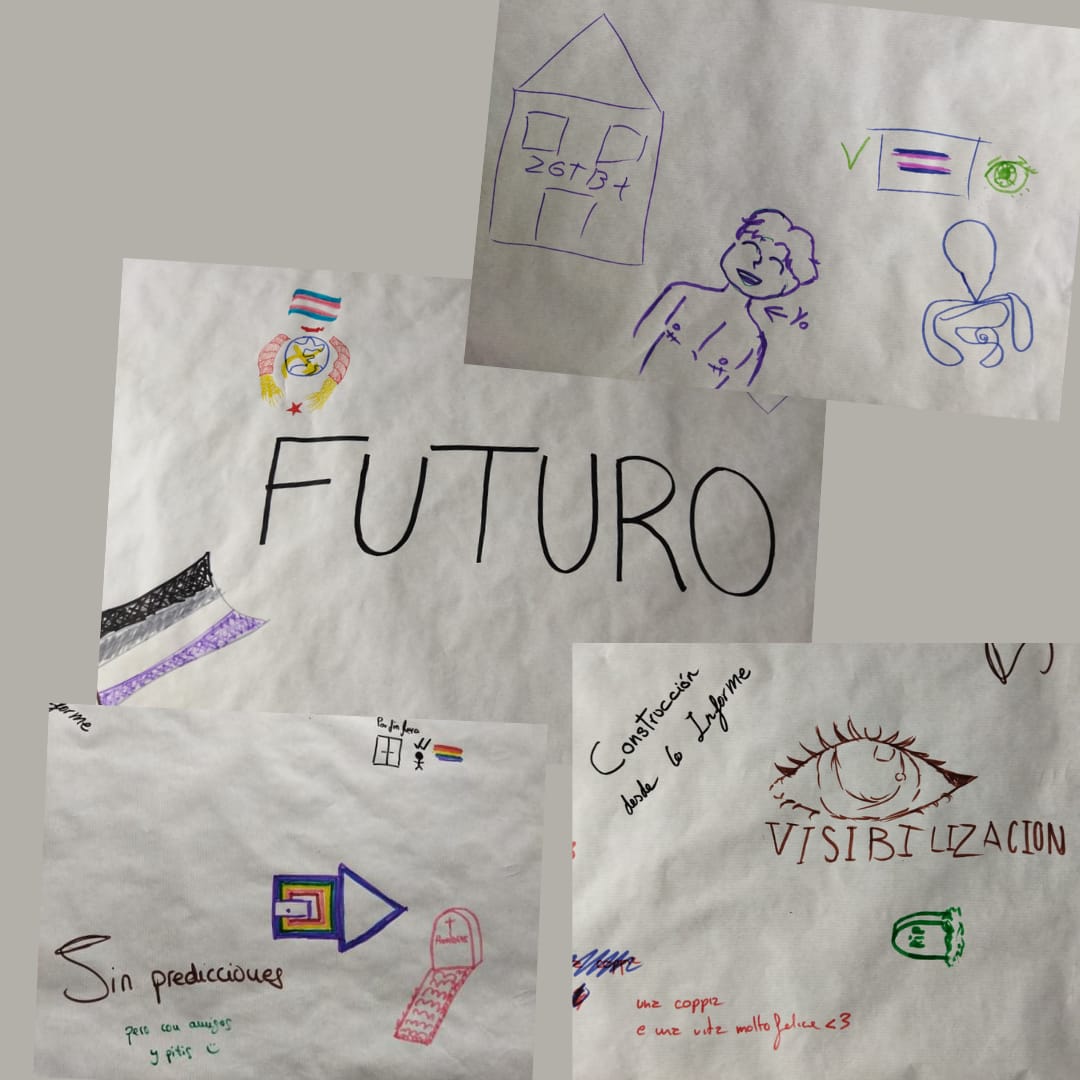 LGTB+
Yo
FUTURO
forme
Por fin fuera
Sin predicciones
pero con amigos
y pitis
Construcción
desde lo Informe
VISIBILIZACION
RIP
una coppia
e una vita molto felice <3